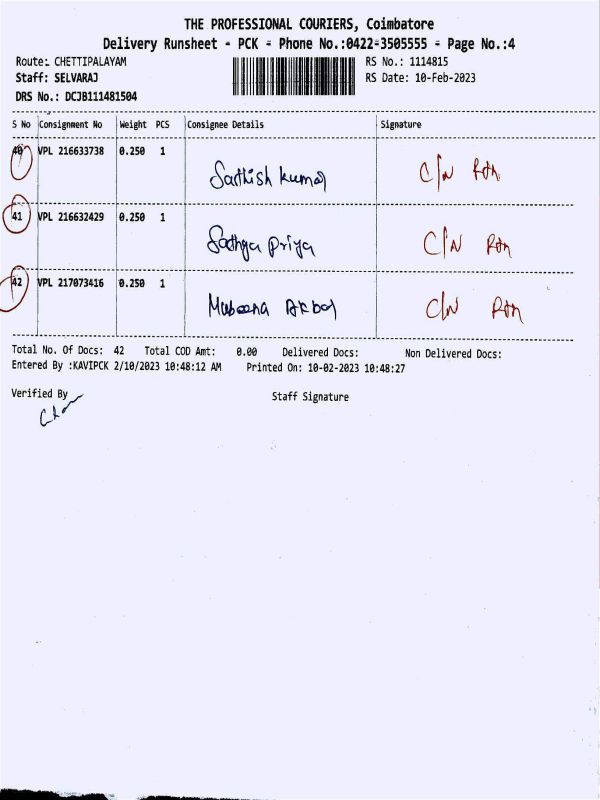 THE PROFESSIONAL COURIERS, Coimbatore
Delivery Runsheet - PCK - Phone No.:0422-3505555 - Page No.:4
Route: CHETTIPALAYAM RS No.: 1114815
Staff: SELVARAJ RS Date: 10-Feb-2023
DRS No.: DCJB111481504
S No Consignment No Weight PCS Consignee Details Signature
40 VPL 216633738 0.250 1
Sathish kumar C/N Rtn
41 VPL 216632429 0.250 1
Sathya Priya C/N Rtn
42 VPL 217073416 0.250 1
Mubeena Akbar C/N Rtn
Total No. Of Docs: 42 Total COD Amt: 0.00 Delivered Docs: Non Delivered Docs:
Entered By :KAVIPCK 2/10/2023 10:48:12 AM Printed On: 10-02-2023 10:48:27
Verified By Staff Signature